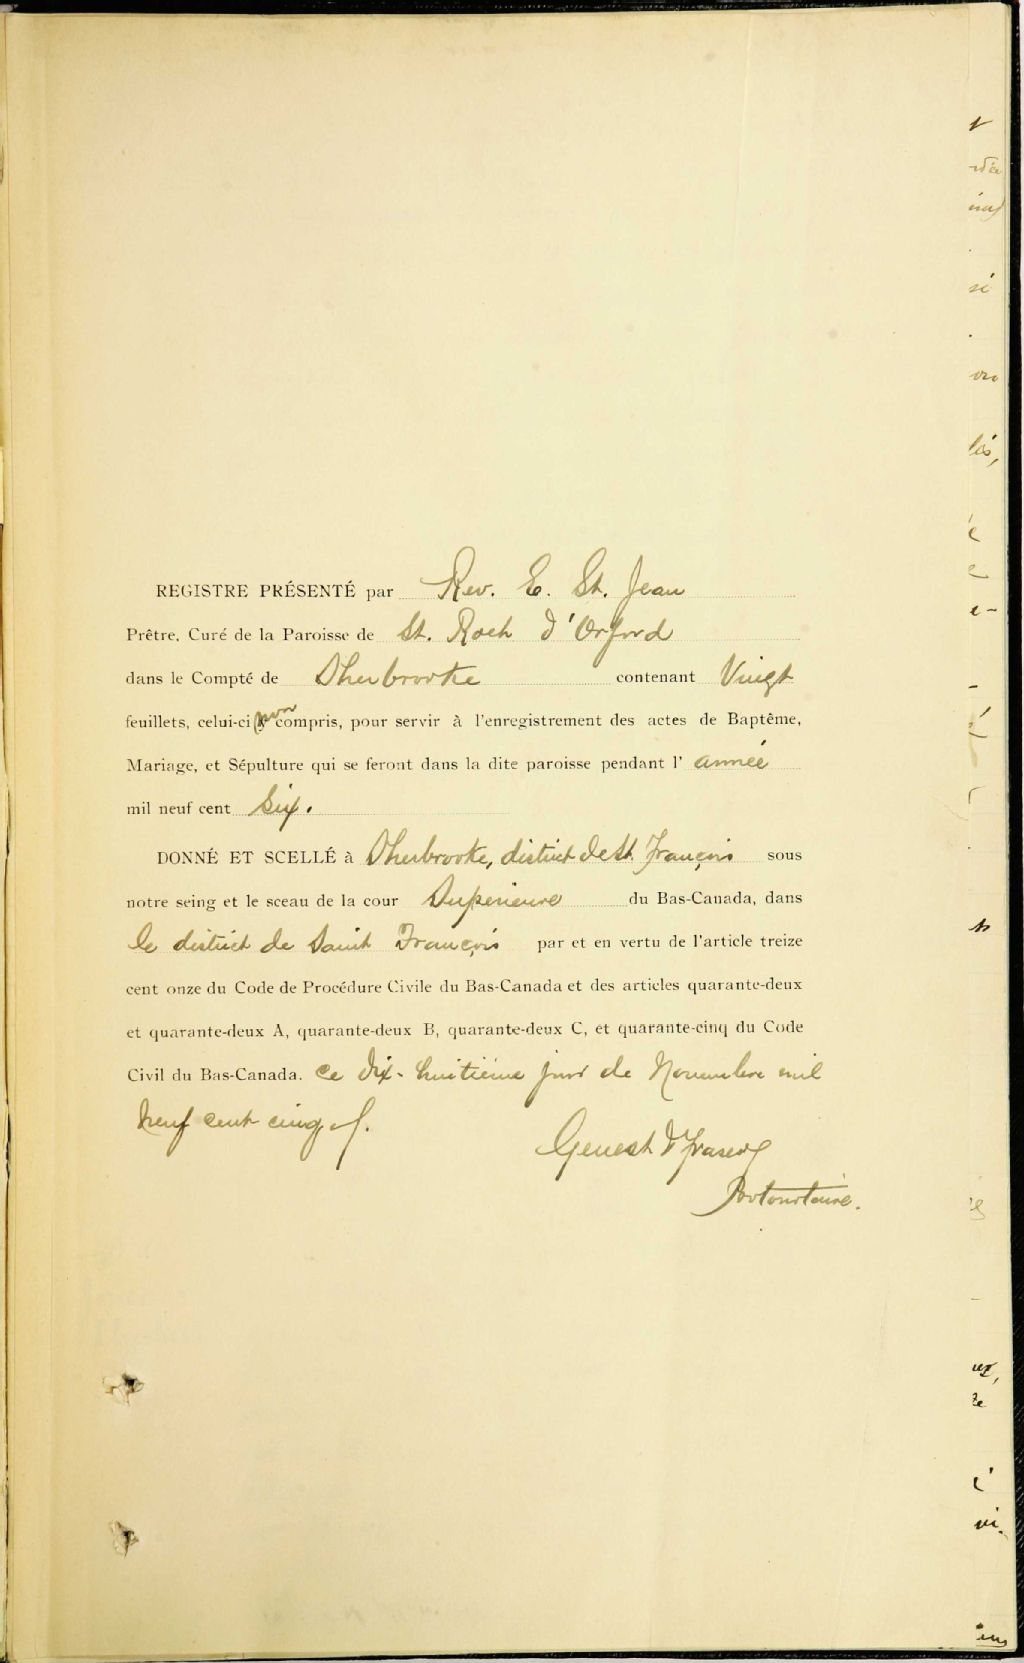 REGISTRE PRÉSENTÉ par Rev. E. St. Jean
Prêtre, Curé de la Paroisse de St. Roch d'Orford
dans le Compté de Sherbrooke contenant Vingt
feuillets, celui-ci non compris, pour servir à l'enregistrement des actes de Baptême,
Mariage, et Sépulture qui se feront dans la dite paroisse pendant l'année
mil neuf cent Six.
DONNÉ ET SCELLÉ à Sherbrooke, district de St François sous
notre seing et le sceau de la cour Superieure du Bas-Canada, dans
le district de Saint François par et en vertu de l'article treize
cent onze du Code de Procédure Civile du Bas-Canada et des articles quarante-deux
et quarante-deux A, quarante-deux B, quarante-deux C, et quarante-cinq du Code
Civil du Bas-Canada. ce dix-huitième jour de Novembre mil
neuf cent cinq
Genest & Fraser
Protonotaire.